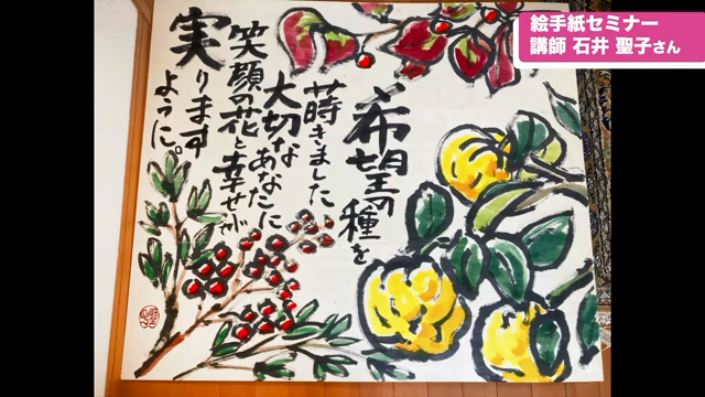 絵手紙セミナー
講師 石井 聖子さん
希望の種を
蒔きました
大切なあなたに
笑顔の花と幸せが
実ります
ように。